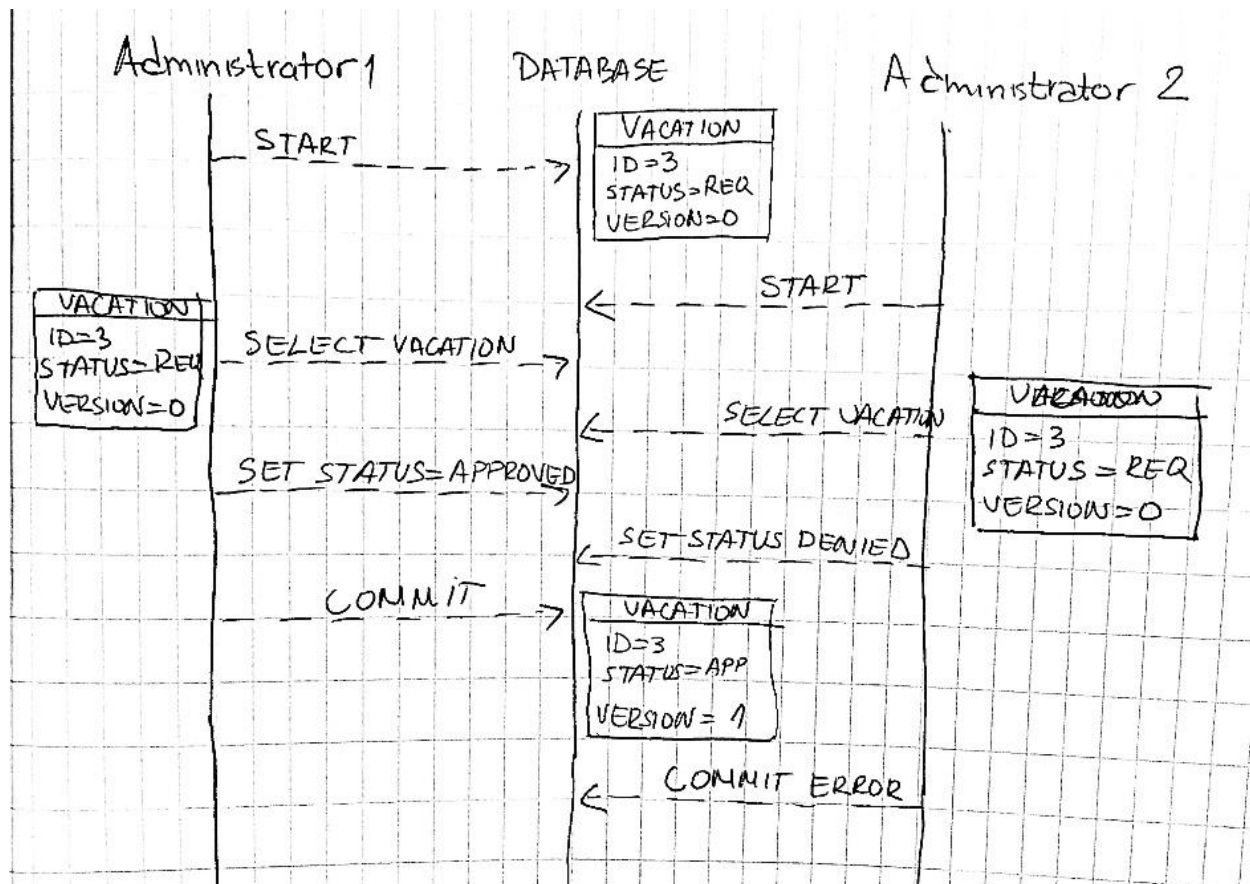 Administrator 1
DATABASE
Administrator 2
START
VACATION
ID=3
STATUS=REQ
VERSION=0
START
VACATION
ID=3
STATUS=REQ
VERSION=0
SELECT VACATION
SELECT VACATION
VACATION
ID=3
STATUS=REQ
VERSION=0
SET STATUS=APPROVED
SET STATUS DENIED
COMMIT
VACATION
ID=3
STATUS=APP
VERSION=1
COMMIT ERROR